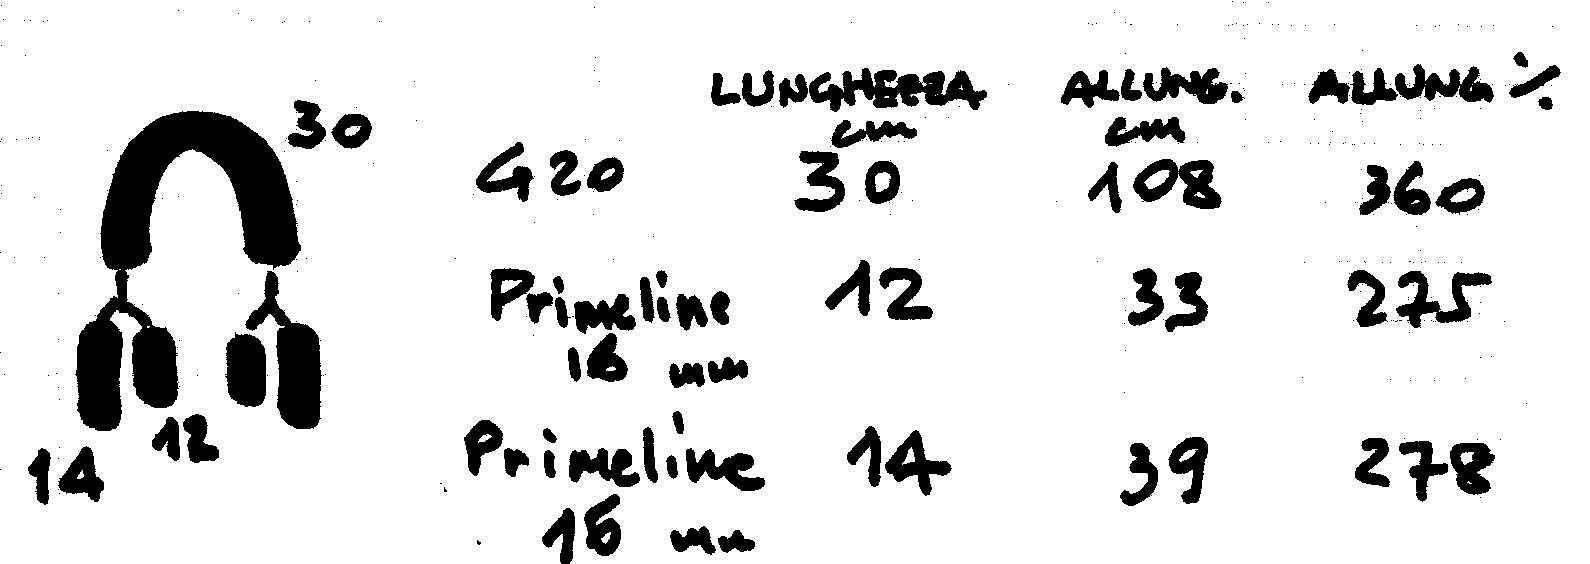 LUNGHEZZA ALLUNG. ALLUNG %
cm cm
30
G20 30 108 360
Primeline 12 33 275
16 mm
12
14
Primeline 14 39 278
16 mm